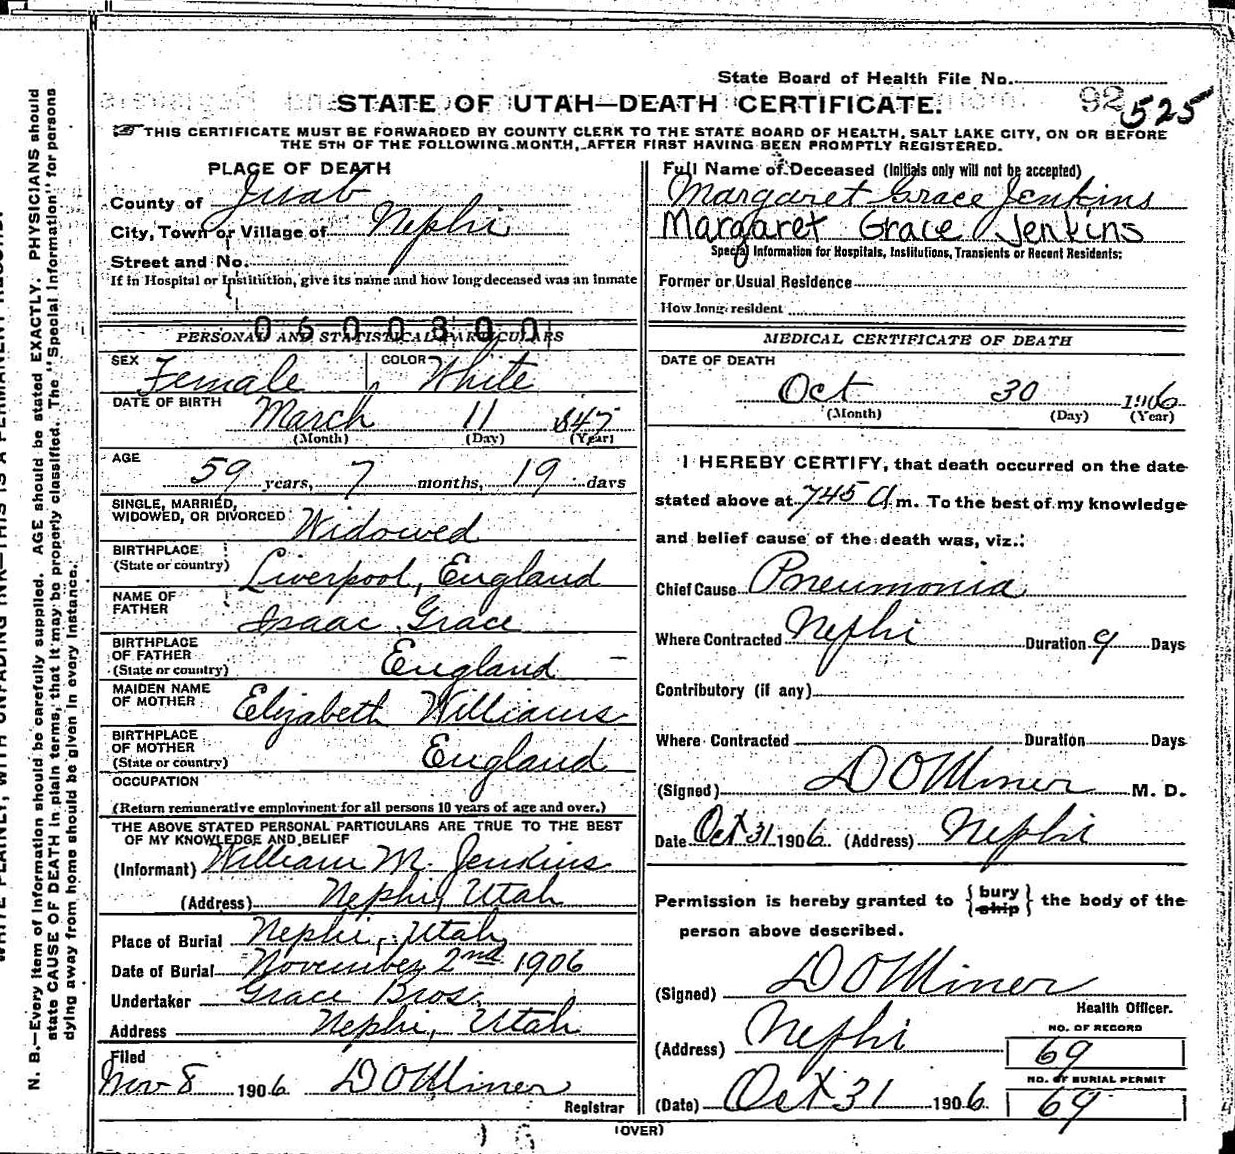 State Board of Health File No.
92 525
STATE OF UTAH—DEATH CERTIFICATE.
THIS CERTIFICATE MUST BE FORWARDED BY COUNTY CLERK TO THE STATE BOARD OF HEALTH, SALT LAKE CITY, ON OR BEFORE
THE 5TH OF THE FOLLOWING MONTH, AFTER FIRST HAVING BEEN PROMPTLY REGISTERED.
PLACE OF DEATH
County of Juab
City, Town or Village of Nephi
Street and No.
If in Hospital or Institution, give its name and how long deceased was an inmate
0600800
PERSONAL AND STATISTICAL PARTICULARS
SEX Female COLOR White
DATE OF BIRTH March 11 847
(Month) (Day) (Year)
AGE 59 years, 7 months, 19 days
SINGLE, MARRIED,
WIDOWED, OR DIVORCED Widowed
BIRTHPLACE
(State or country) Liverpool, England
NAME OF
FATHER Isaac Grace
BIRTHPLACE
OF FATHER
(State or country) England —
MAIDEN NAME
OF MOTHER Elizabeth Williams
BIRTHPLACE
OF MOTHER
(State or country) England
OCCUPATION
(Return remunerative employment for all persons 10 years of age and over.)
THE ABOVE STATED PERSONAL PARTICULARS ARE TRUE TO THE BEST
OF MY KNOWLEDGE AND BELIEF
(Informant) William M. Jenkins
(Address) Nephi, Utah
Place of Burial Nephi, Utah
Date of Burial November 2nd 1906
Undertaker Grace Bros.
Address Nephi, Utah
Filed
Nov 8 1906 D O Miner
Registrar
Full Name of Deceased (Initials only will not be accepted)
Margaret Grace Jenkins
Margaret Grace Jenkins
Special Information for Hospitals, Institutions, Transients or Recent Residents:
Former or Usual Residence
How long resident
MEDICAL CERTIFICATE OF DEATH
DATE OF DEATH
Oct 30 1906
(Month) (Day) (Year)
I HEREBY CERTIFY, that death occurred on the date
stated above at 745 A m. To the best of my knowledge
and belief cause of the death was, viz.:
Chief Cause Pneumonia
Where Contracted Nephi Duration 9 Days
Contributory (if any)
Where Contracted Duration Days
(Signed) D O Miner M. D.
Date Oct 31 1906. (Address) Nephi
Permission is hereby granted to {bury
ship} the body of the
person above described.
(Signed) D O Miner
Health Officer.
(Address) Nephi
NO. OF RECORD
69
(Date) Oct 31 1906.
NO. OF BURIAL PERMIT
69
(OVER)
N. B.—Every item of information should be carefully supplied. AGE should be stated EXACTLY. PHYSICIANS should
state CAUSE OF DEATH in plain terms, that it may be properly classified. The "Special Information" for persons
dying away from home should be given in every instance.